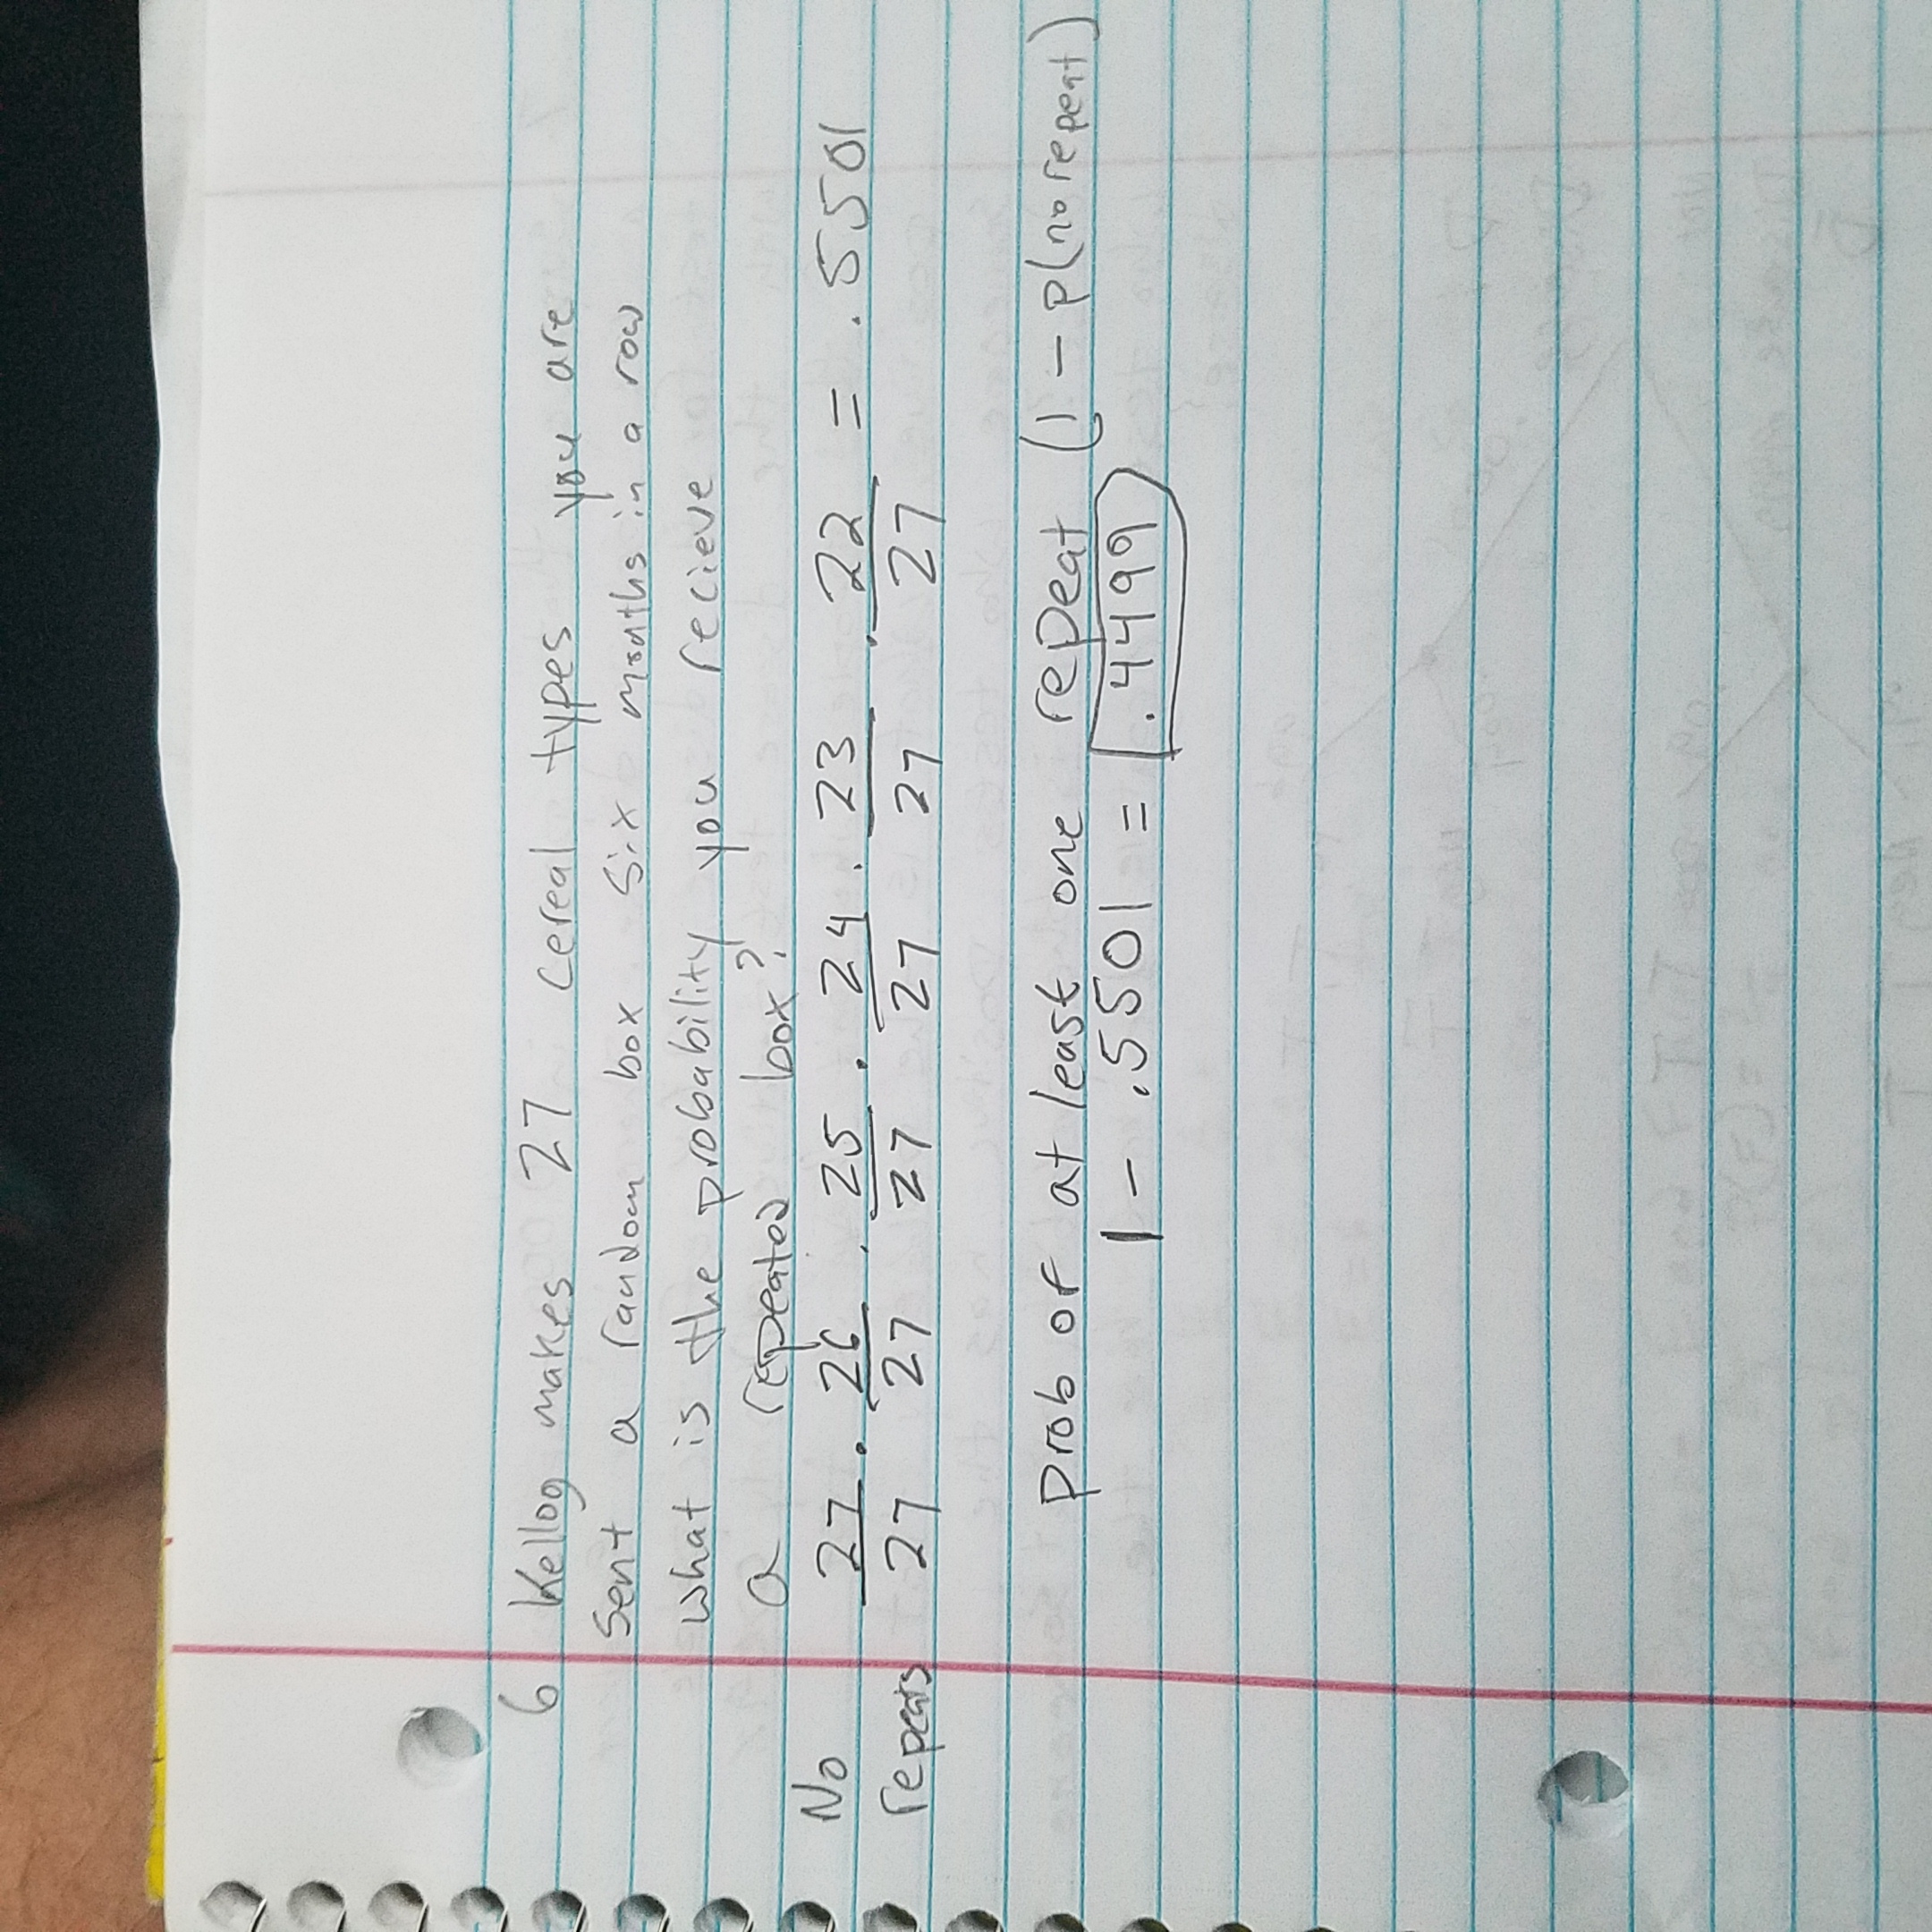 6 Kellog makes 27 cereal types you are
sent a random box six months in a row
what is the probability you recieve
a repeated box?
No repeats 27/27 . 26/27 . 25/27 . 24/27 . 23/27 . 22/27 = .5501
prob of at least one repeat (1 - p(no repeat)
1 - .5501 = .4499